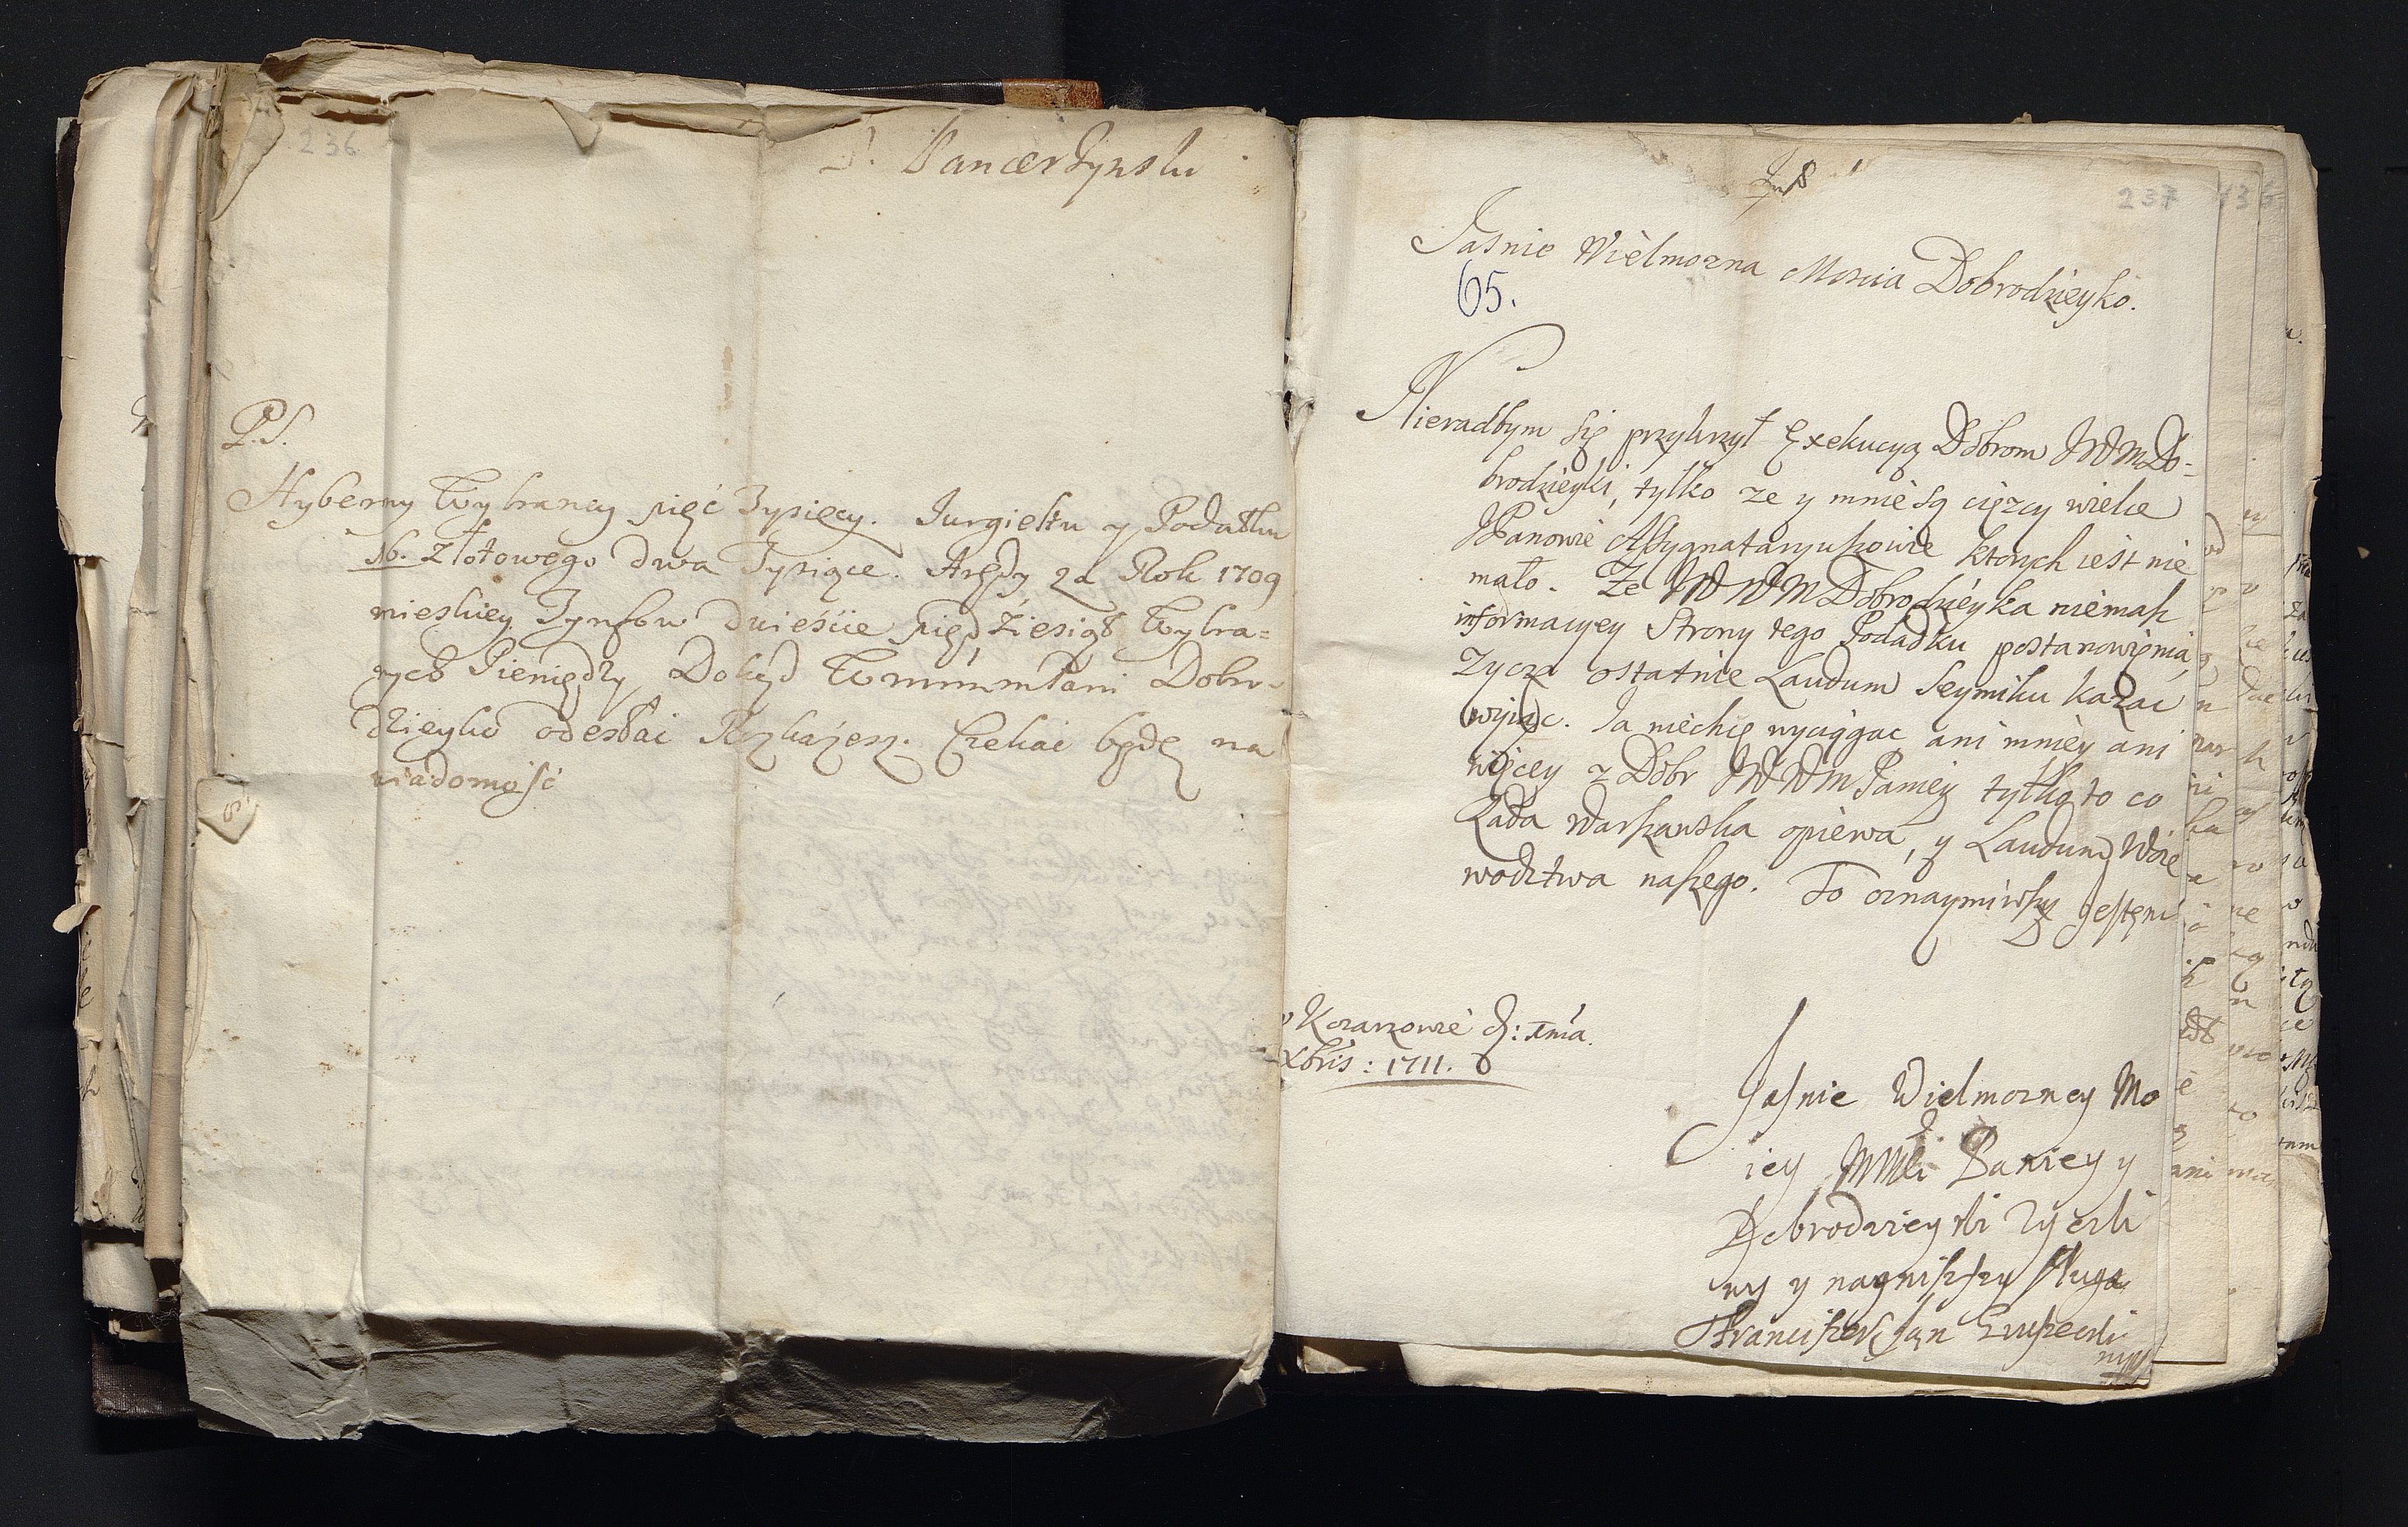 236
P. Pancerzynski
P.S.
Hyberny Wybraney pięć Tysięcy. Jurgieltu y Podatku
16. złotowego dwa Tysiące. Arędy za Rok 1709
mieskiey Tynfow dwieście piędźiesiąt Wybra=
nych Pieniędzy Dokąd WmmmPani Dobro-
dzieyko odesłać Rozkażesz. Czekać będę na
wiadomość
237
Jasnie Wielmozna Moscia Dobrodzieyko.
65.
Nieradbym się przykrzył Exekucyą Dobrom JWWM Do-
brodzieyki, tylko ze y mnie są cięzcy wielce
JPanowie Assygnataryuszowie ktorych iest nie
mało. Ze JWWMDobrodzieyka niemasz
informacyey Strony tego Podadku postanowienia,
zycze ostatnie Laudum Seymiku kazac
wyiąc. Ja niechcę wyciągac ani mniey ani
więcey z Dobr JWWM Paniey tylko to co
Rada Warszawska opiewa, y Laudum Woie
wodztwa naszego. To oznaymiwszy jestęm
w Kozarzowie d: 1ma
Xbris: 1711.
Jasnie Wielmozney Mo
iey Paniey y
Dobrodzieyki zyczli
wy y naynizszy sługa
Franciszek Jan
mpp